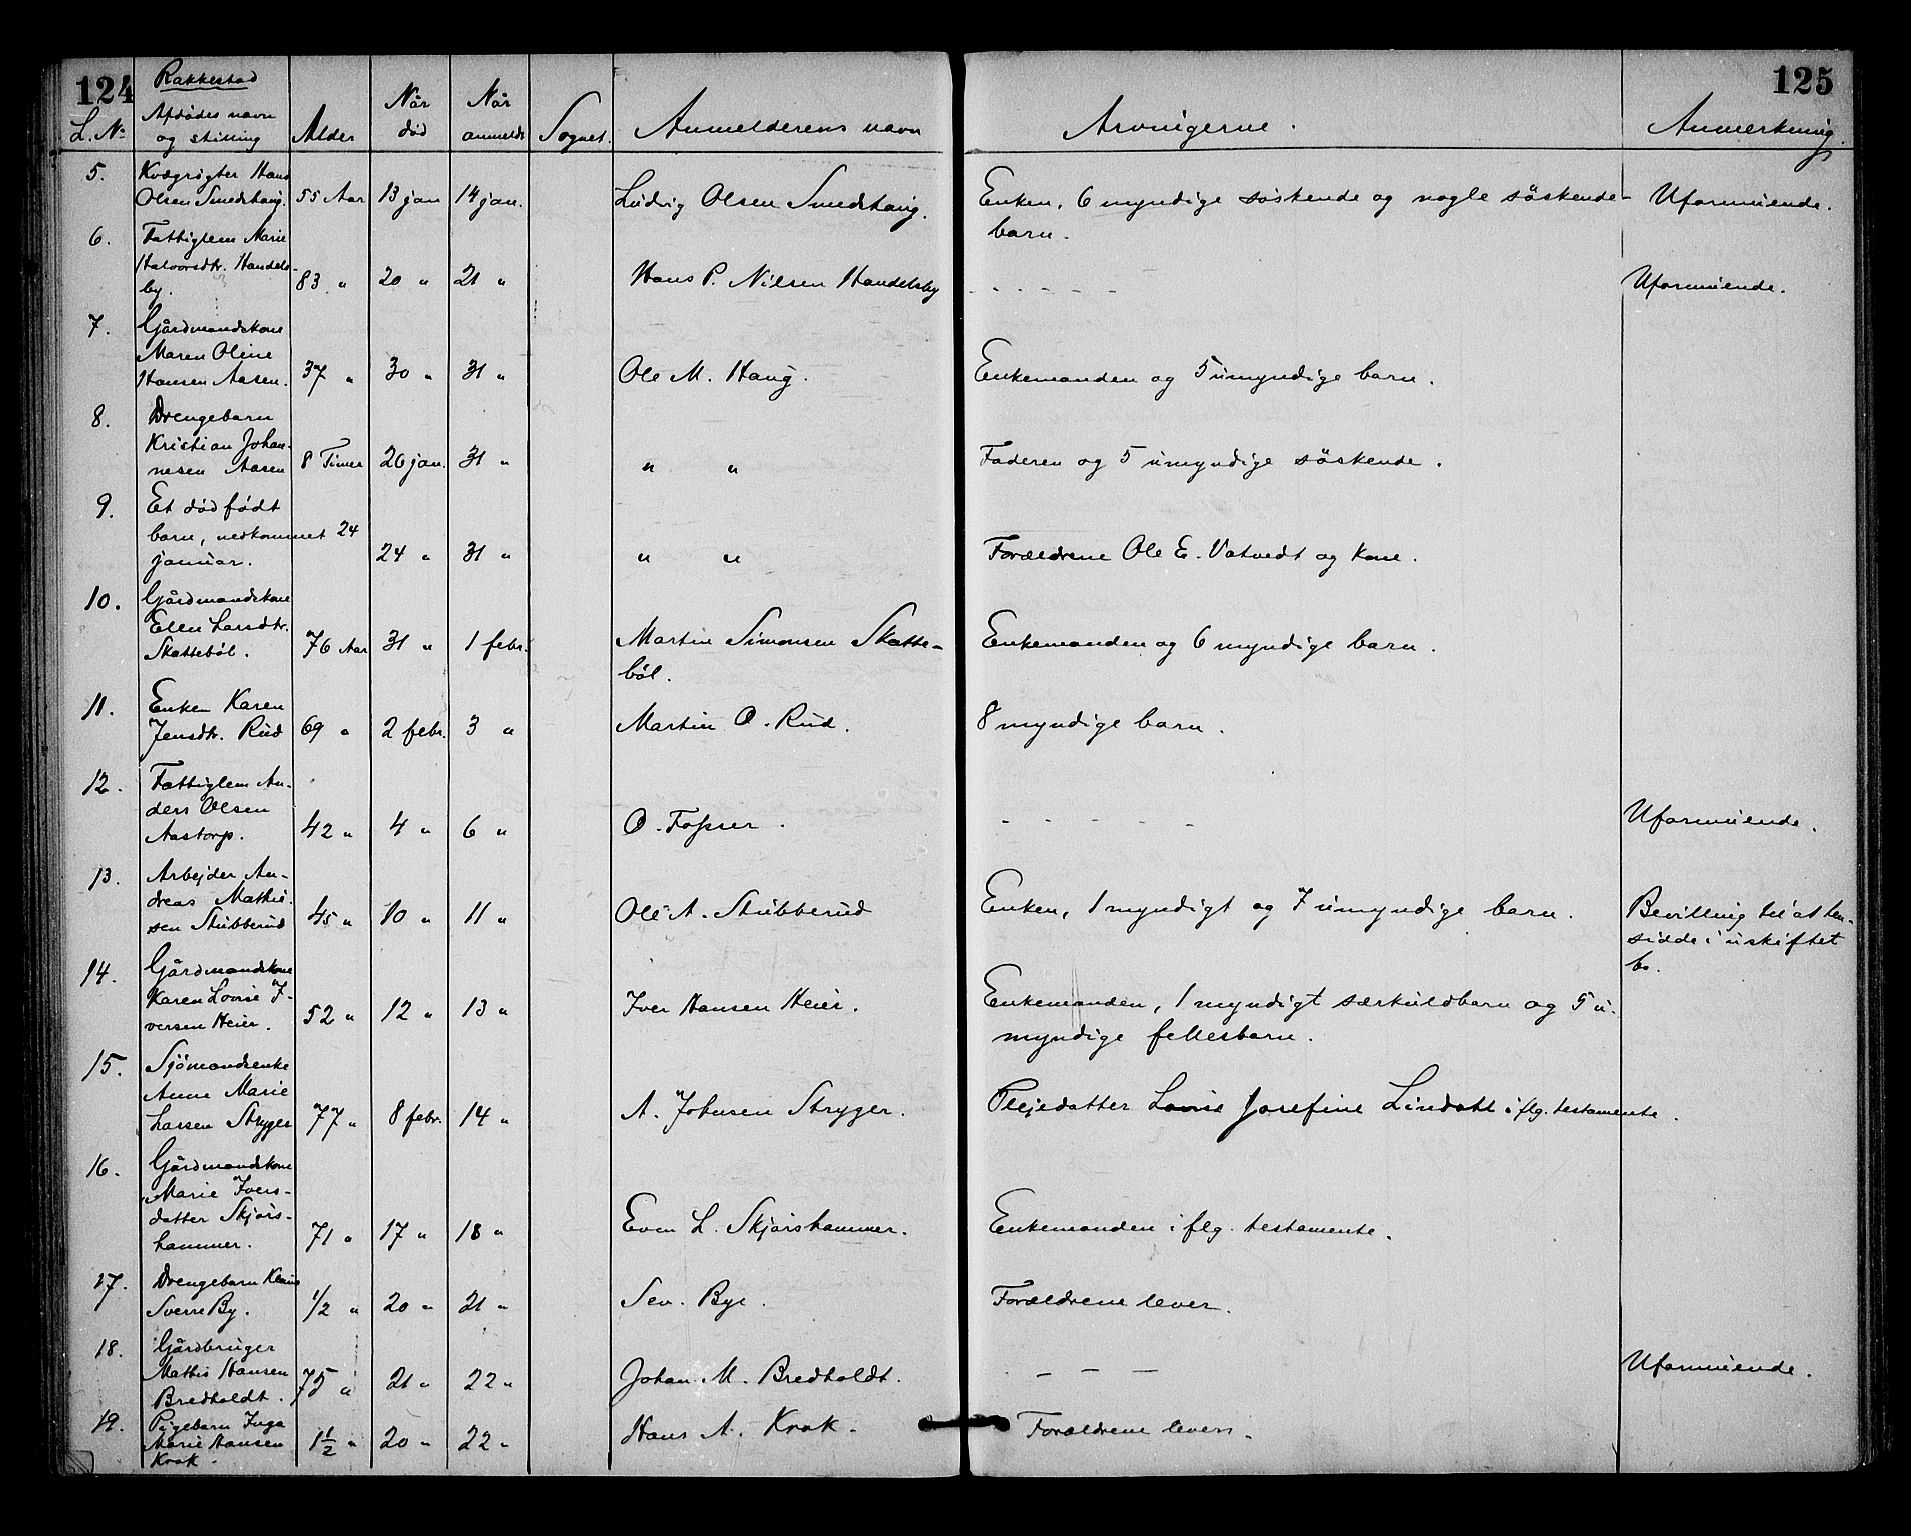 124 Rakkestad 125
L. № Afdødes navn og stilling Alder Når død Når anmeldt Sognet. Anmelderens navn Arvingerne. Anmerkning
5. Kvægrøgter Hans
Olsen Smedhaug. 55 Aar 13 jan 14 jan. Ludvig Olsen Smedhaug. Enken, 6 myndige søskende og nogle söskende- Uformuende.
barn.
6. Fattiglem Marie
Halvorsdtr. Handels-
by. 83 " 20 " 21 " Hans P. Nilsen Handelsby - - - - - Uformuende.
7. Gårdmandskone
Maren Oline
Hansen Aasen. 37 " 30 " 31 " Ole M. Haug. Enkemanden og 5 umyndige barn.
8. Drengebarn
Kristian Johan-
nesen Aasen 8 Timer 26 jan. 31 " " " Faderen og 5 umyndige söskende.
9. Et død født
barn, nedkommet 24
januar. 24 " 31 " " " Forældrene Ole E. Vatvedt og kone.
10. Gårdmandskone
Ellen Larsdtr.
Skattebøl. 76 Aar 31 " 1 febr. Martin Simonsen Skatte- Enkemanden og 6 myndige barn.
bøl.
11. Enken Karen
Jensdtr. Rud 69 " 2 febr. 3 " Martin O. Rud. 8 myndige barn.
12. Fattiglem An-
ders Olsen
Aastorp. 42 " 4 " 6 " O. Fosser. - - - - - Uformuende.
13. Arbejder An-
dreas Mathi-
sen Stubberud 45 " 10 " 11 " Ole A. Stubberud Enken, 1 myndigt og 7 umyndige barn. Bevilling til at hen-
sidde i uskiftet
bo.
14. Gårdmandskone
Karen Lovise I-
versen Heier. 52 " 12 " 13 " Iver Hansen Heier. Enkemanden, 1 myndigt særkuldbarn og 5 u-
myndige fellesbarn.
15. Sjömandsenke
Anne Marie
Larsen Stryger 77 " 8 febr. 14 " A. Johnsen Stryger. Plejedatter Lovis Josefine Lindatl i flg. testamente.
16. Gårdmandskone
Marie Ivers-
datter Skjörs-
hammer. 71 " 17 " 18 " Even L. Skjörshammer. Enkemanden i flg. testamente.
17. Drengebarn Klaus
Sverre By. 1/2 " 20 " 21 " Sev. Bye. Forældrene lever.
18. Gårdbruger
Mathis Hansen
Bredholdt. 75 " 21 " 22 " Johan M. Bredholdt. - - - Uformuende.
19. Pigebarn Inga
Marie Hansen
Krok. 1 1/2 " 20 " 22 " Hans A. Krok. Forældrene lever.